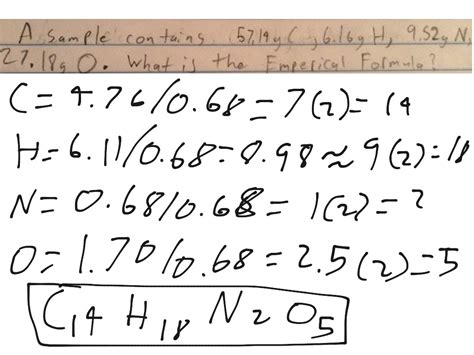 A sample contains 57.14g C, 6.16g H, 9.52g N,
27.18g O. What is the Emperical Formula?
C = 4.76/0.68 = 7(2) = 14
H = 6.11/0.68 = 8.98 ≈ 9(2) = 18
N = 0.68/0.68 = 1(2) = 2
O = 1.70/0.68 = 2.5(2) = 5
C14 H18 N2 O5